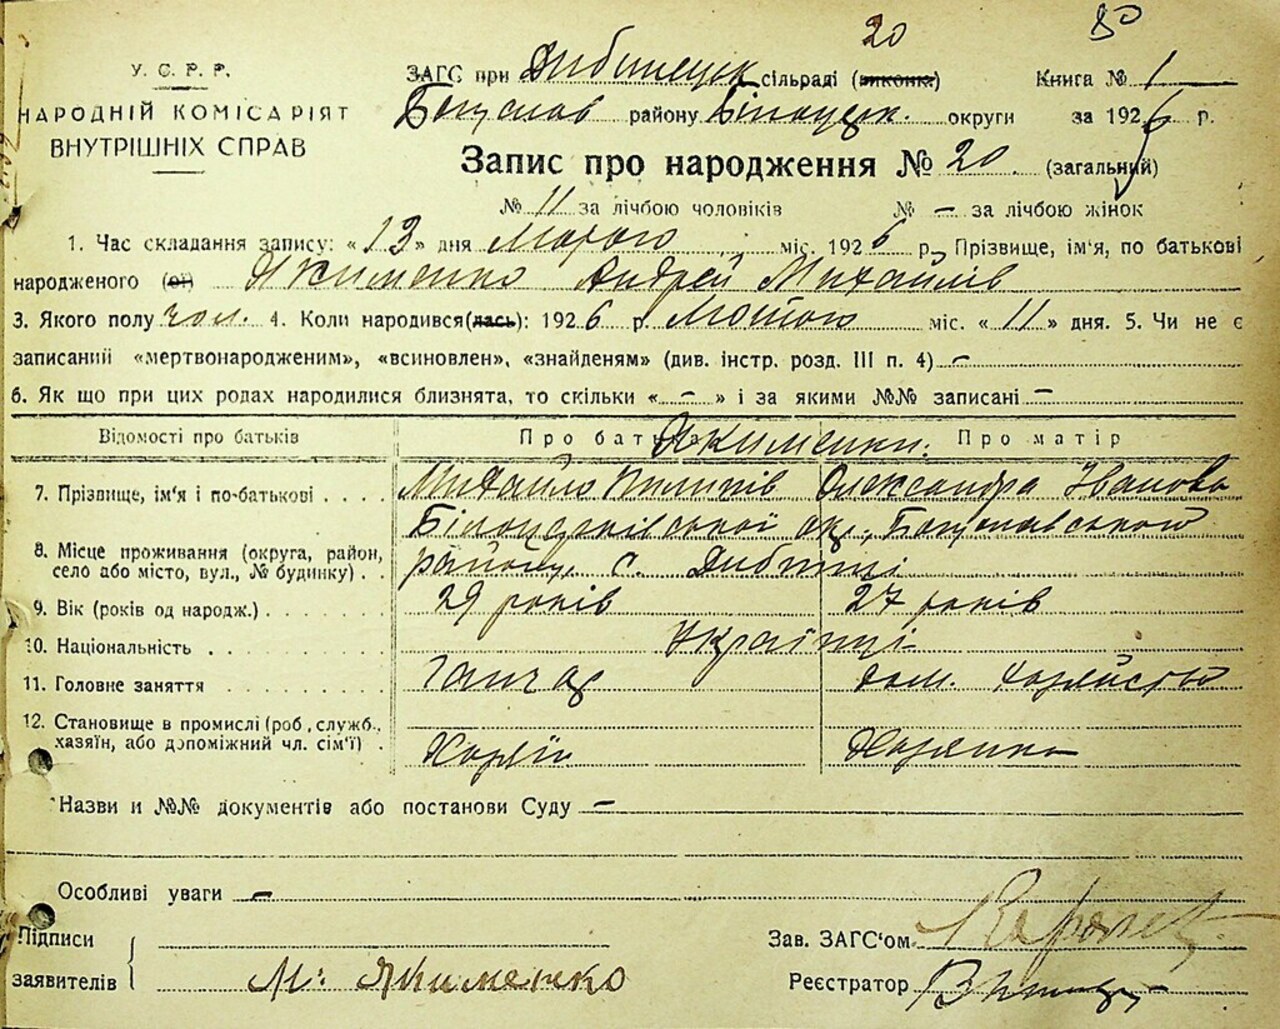 20 80
У. С. Р. Р.
НАРОДНІЙ КОМІСАРІЯТ
ВНУТРІШНІХ СПРАВ
ЗАГС при Дибинецьк сільраді (виконка) Книга № 1
Богуслав району Білоцерк. округи за 1926 р.
Запис про народження № 20 (загальний)
№ 11 за лічбою чоловіків № — за лічбою жінок
1. Час складання запису: «13» дня Марта міс. 1926 р. Прізвище, ім'я, по батькові
народженого (ої) Якименко Андрей Михайлів
3. Якого полу чол. 4. Коли народився(лась): 1926 р. Лютого міс. «11» дня. 5. Чи не є
записаний «мертвонародженим», «всиновлен», «знайденям» (див. інстр. розд. III п. 4) —
6. Як що при цих родах народилися близнята, то скільки « — » і за якими №№ записані —
Відомості про батьків Про батька Якименки. Про матір
7. Прізвище, ім'я і по-батькові . . . . Михайло Пилипів Олександра Іванова
Білоцерківської ок., Богуславського
8. Місце проживання (округа, район,
село або місто, вул., № будинку) . . району с. Дибинці
9. Вік (років од народж.) . . . . . . . 29 років 27 років
10. Національність . . . . . . . . . Українці
11. Головне заняття . . . . . . . . . Ганчар дом. хазяйство
12. Становище в промислі (роб., служб.,
хазяїн, або допоміжний чл. сім'ї) . Хазяїн Хазяйка
Назви и №№ документів або постанови Суду —
Особливі уваги —
Підписи
заявителів М. Якименко
Зав. ЗАГС'ом
Реєстратор